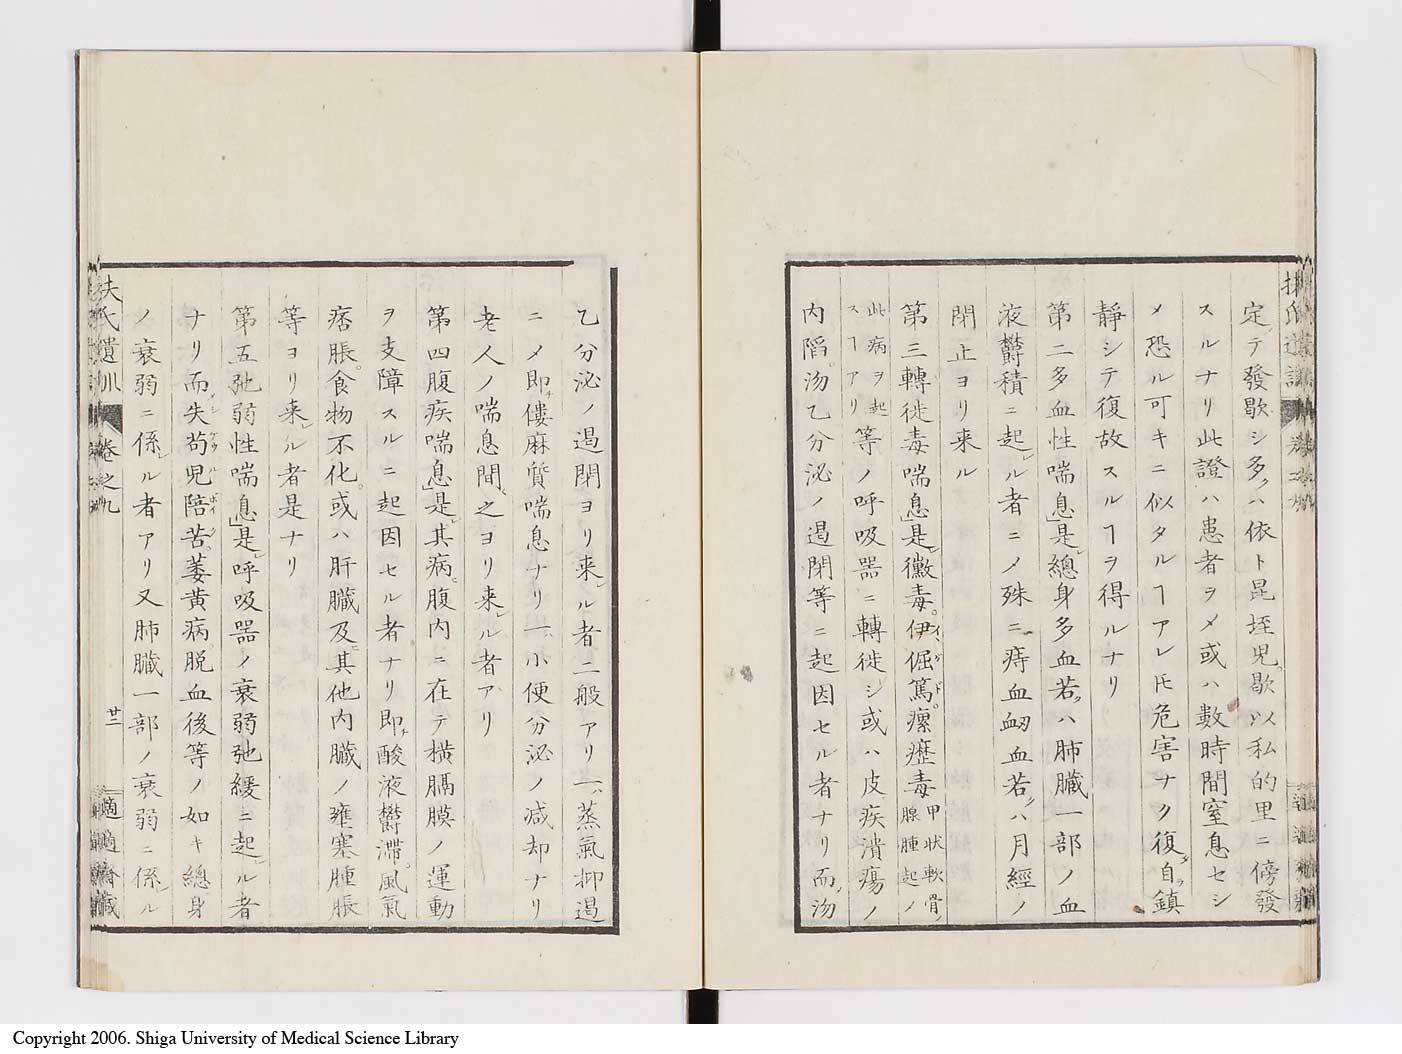 定テ發歇シ多クハ依ト昆垤児歇以私的里ニ傍發
スルナリ此證ハ患者ヲメ或ハ數時間窒息セシ
メ恐ル可キニ似タルヿアレ𪜈危害ナク復タ自ラ鎮
靜シテ復故スルヿヲ得ルナリ
第二多血性喘息」是レ總身多血若クハ肺臓一部ノ血
液欝積ニ起レル者ニメ殊ニ痔血衂血若クハ月經ノ
閉止ヨリ来ル
第三轉徙毒喘息」是レ黴毒。伊倔篤。瘰癧毒甲状軟骨ノ腺腫起ノ
此病ヲ起スヿアリ等ノ呼吸噐ニ轉徙シ或ハ皮疾潰瘍ノ
内陷。汤乙分泌ノ遏閉等ニ起因セル者ナリ而ノ汤
乙分泌ノ遏閉ヨリ来レル者二般アリ一ハ蒸氣抑遏
ニメ即チ僂麻質喘息ナリ一ハ小便分泌ノ减却ナリ
老人ノ喘息間之ヨリ来レル者アリ
第四腹疾喘息」是レ其病腹内ニ在テ横膈膜ノ運動
ヲ支障スルニ起因セル者ナリ即チ酸液欝滞。風氣
痞脹。食物不化。或ハ肝臓及ヒ其他内臓ノ壅塞腫脹
等ヨリ来レル者是ナリ
第五弛弱性喘息」是レ呼吸噐ノ衰弱弛緩ニ起レル者
ナリ而ノ失苟児陪苦。萎黄病。脱血後等ノ如キ總身
ノ衰弱ニ係ル者アリ又肺臓一部ノ衰弱ニ係レル
扶氏遺訓 卷之九 廿二 適適齋藏